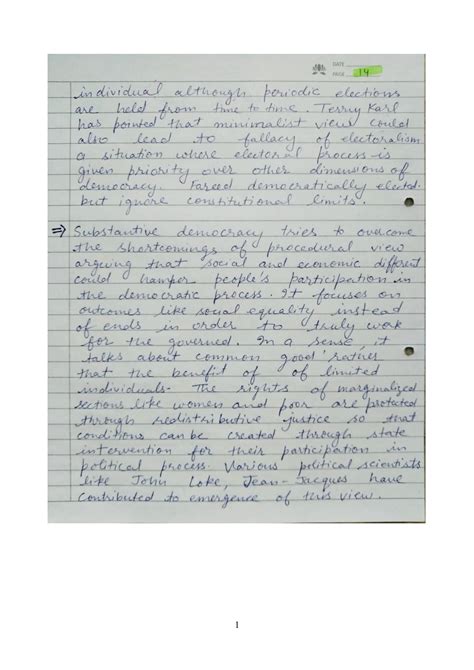 DATE
PAGE 14
individual although periodic elections
are held from time to time. Terry Karl
has pointed that minimalist view could
also lead to fallacy of electoralism
a situation where electoral process is
given priority over other dimensions of
democracy. Fareed democratically elected
but ignore constitutional limits.
⇒ Substantive democracy tries to overcome
the shortcomings of procedural view
arguing that social and economic different
could hamper people's participation in
the democratic process. It focuses on
outcomes like social equality instead
of ends in order to truly work
for the governed. In a sense, it
talks about 'common good' rather
that the benefit of of limited
individuals. The rights of marginalized
sections like women and poor are protated
through redistributive justice so that
conditions can be created through state
intervention for their participation in
political process. Various political scientists
like John Loke, Jean-Jacques have
contributed to emergence of this view.
1